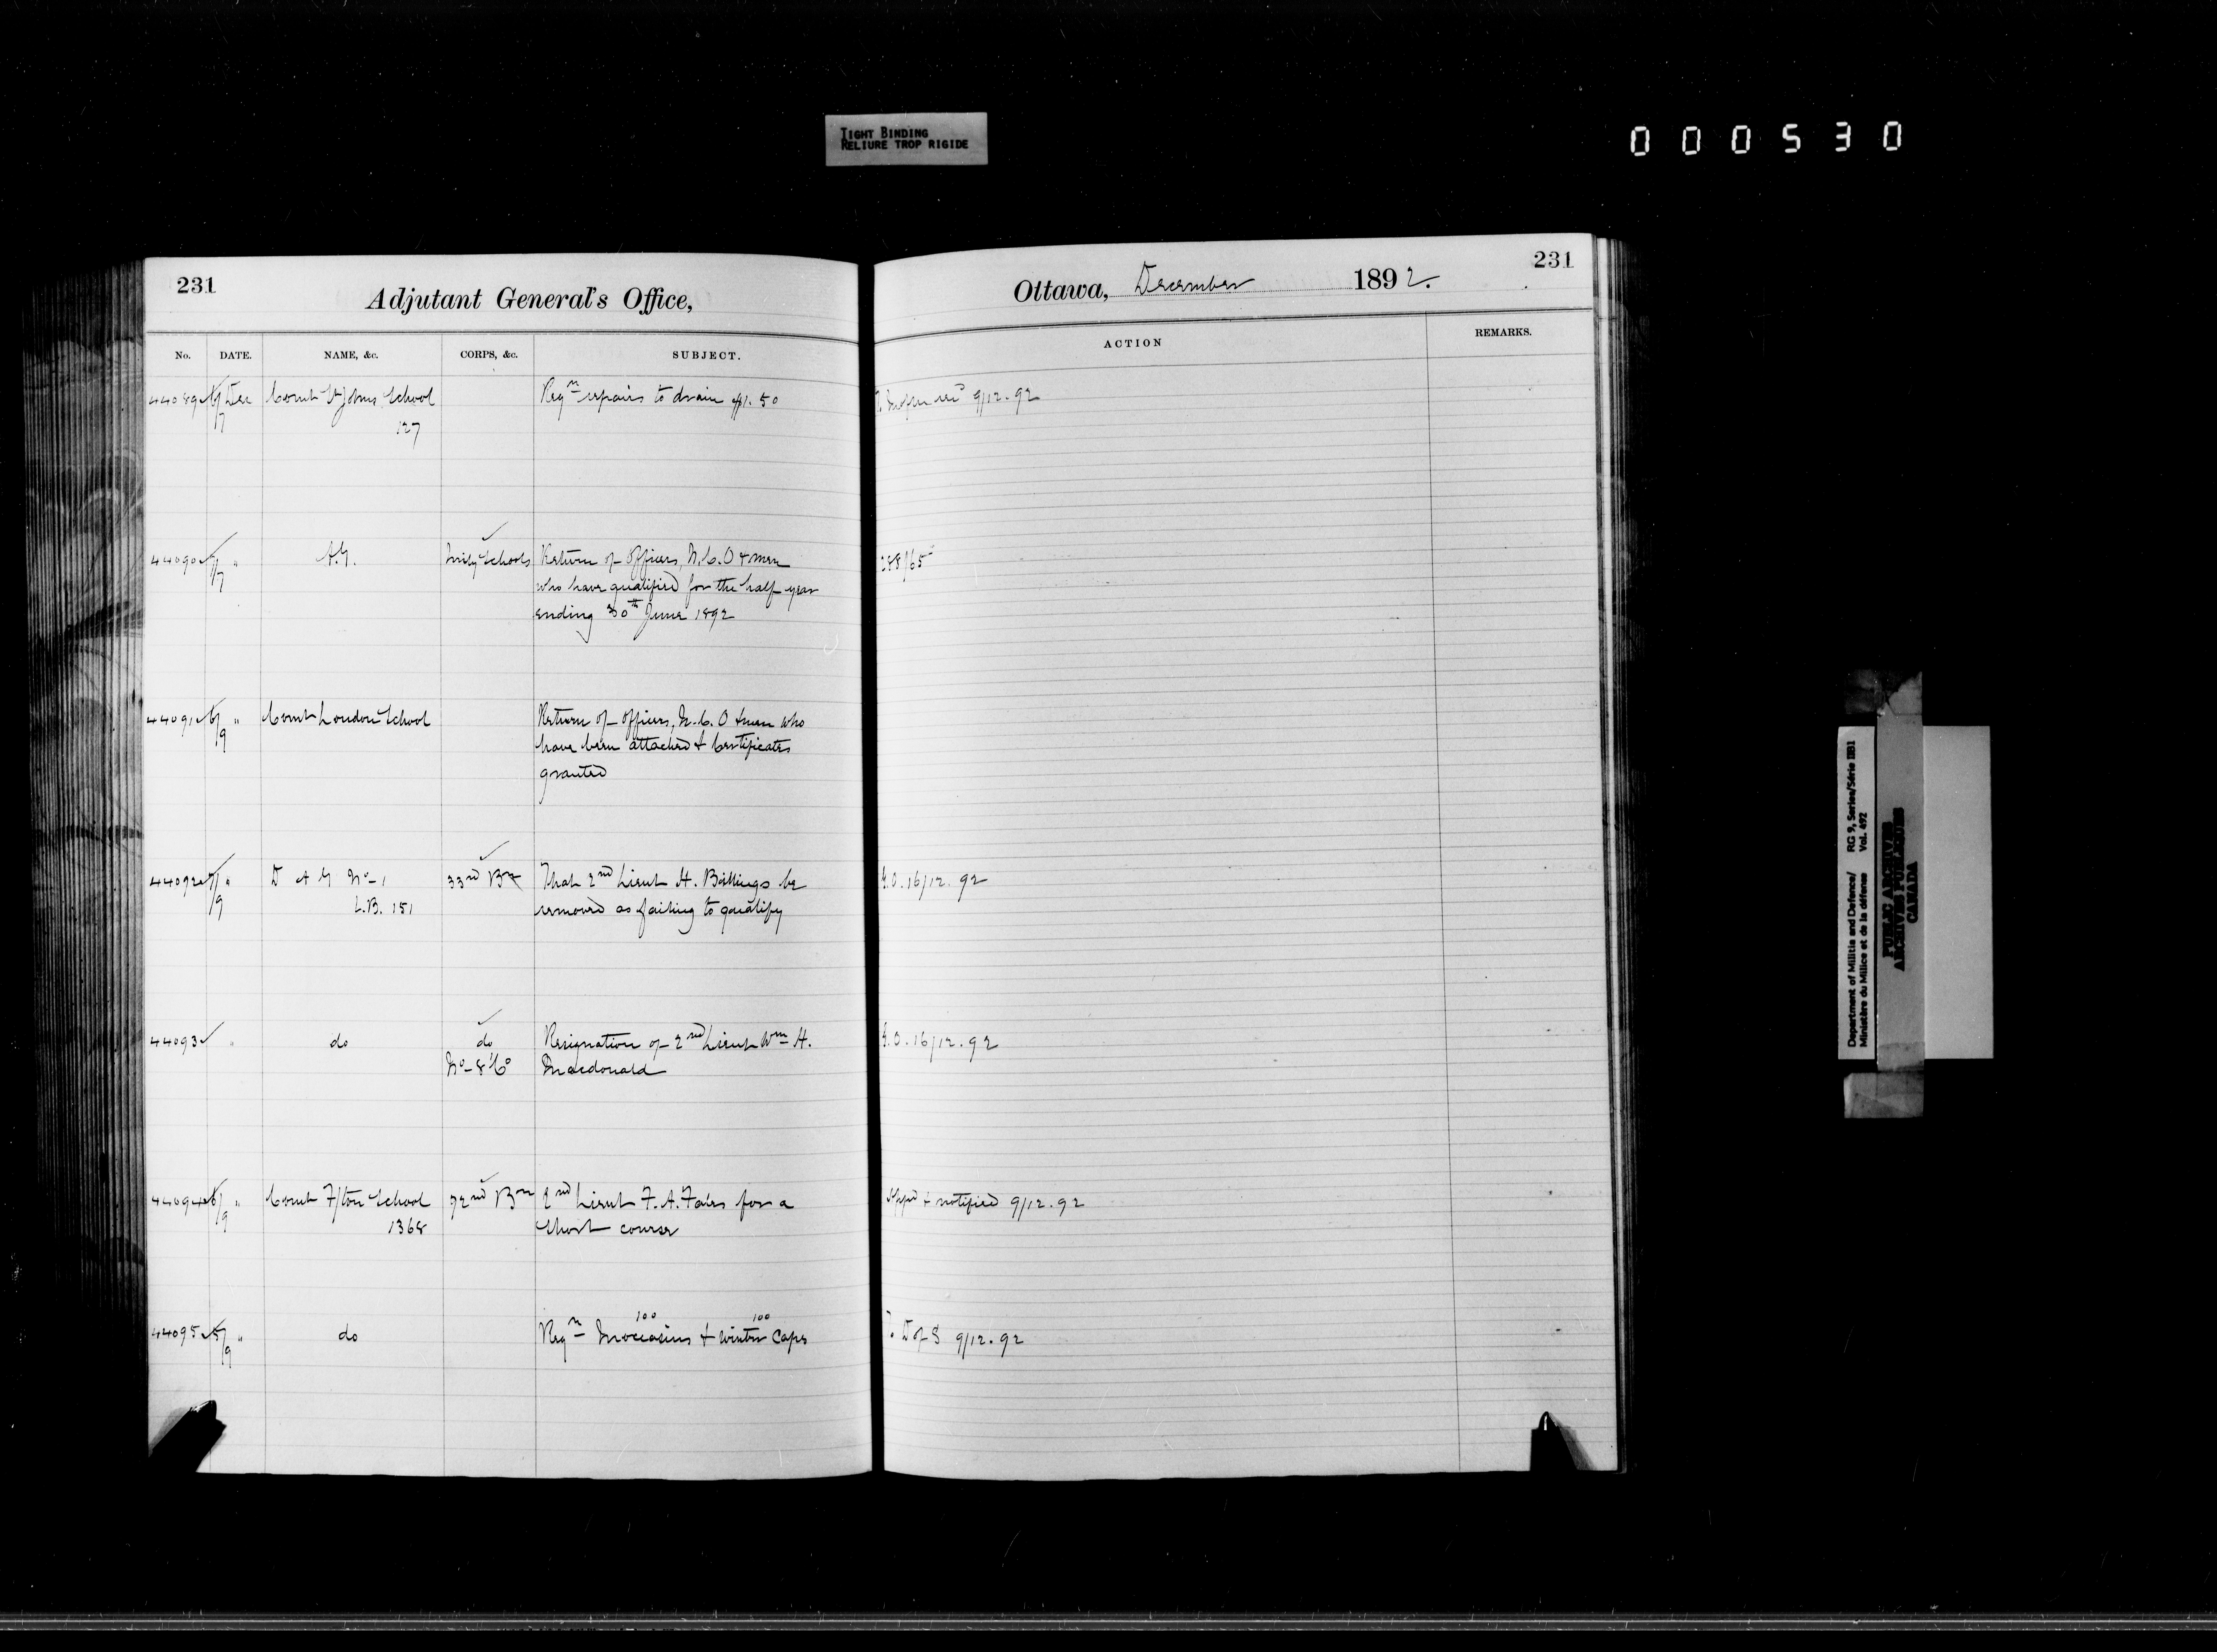 TIGHT BINDING
RELIURE TROP RIGIDE
000530
231
Adjutant General's Office,
Ottawa, December 1892.
231
No. DATE. NAME, &c. CORPS, &c. SUBJECT.
ACTION REMARKS.
44089 6/7 Dec Comt St Johns School Reqn repairs to drain $1.50 9/12.92
127
44090 7 " A.G. Mily Schools Return of Officers, N.C.O & men 288/65
who have qualified for the half year
ending 30th June 1892
44091 6/9 " Comt London School Return of Officers, N.C.O & men who
have been attached & Certificates
granted
44092 7/9 " D A G No-1 33rd Bn That 2nd Lieut H. Billings be G.O. 16/12.92
L.B. 151 removed as failing to qualify
44093 " do do Resignation of 2nd Lieut Wm H. G.O. 16/12.92
No-8 Co Macdonald
44094 6/9 " Comt F/ton School 72nd Bn 2nd Lieut F. A. Fales for a Appd & notified 9/12.92
1368 Short course
100 100
44095 5/9 " do Reqn Moccasins & winter caps D of S 9/12.92
Department of Militia and Defence/ RG 9, Series/Série IIB1
Ministère du Milice et de la défense Vol. 492
PUBLIC ARCHIVES
ARCHIVES PUBLIQUES
CANADA